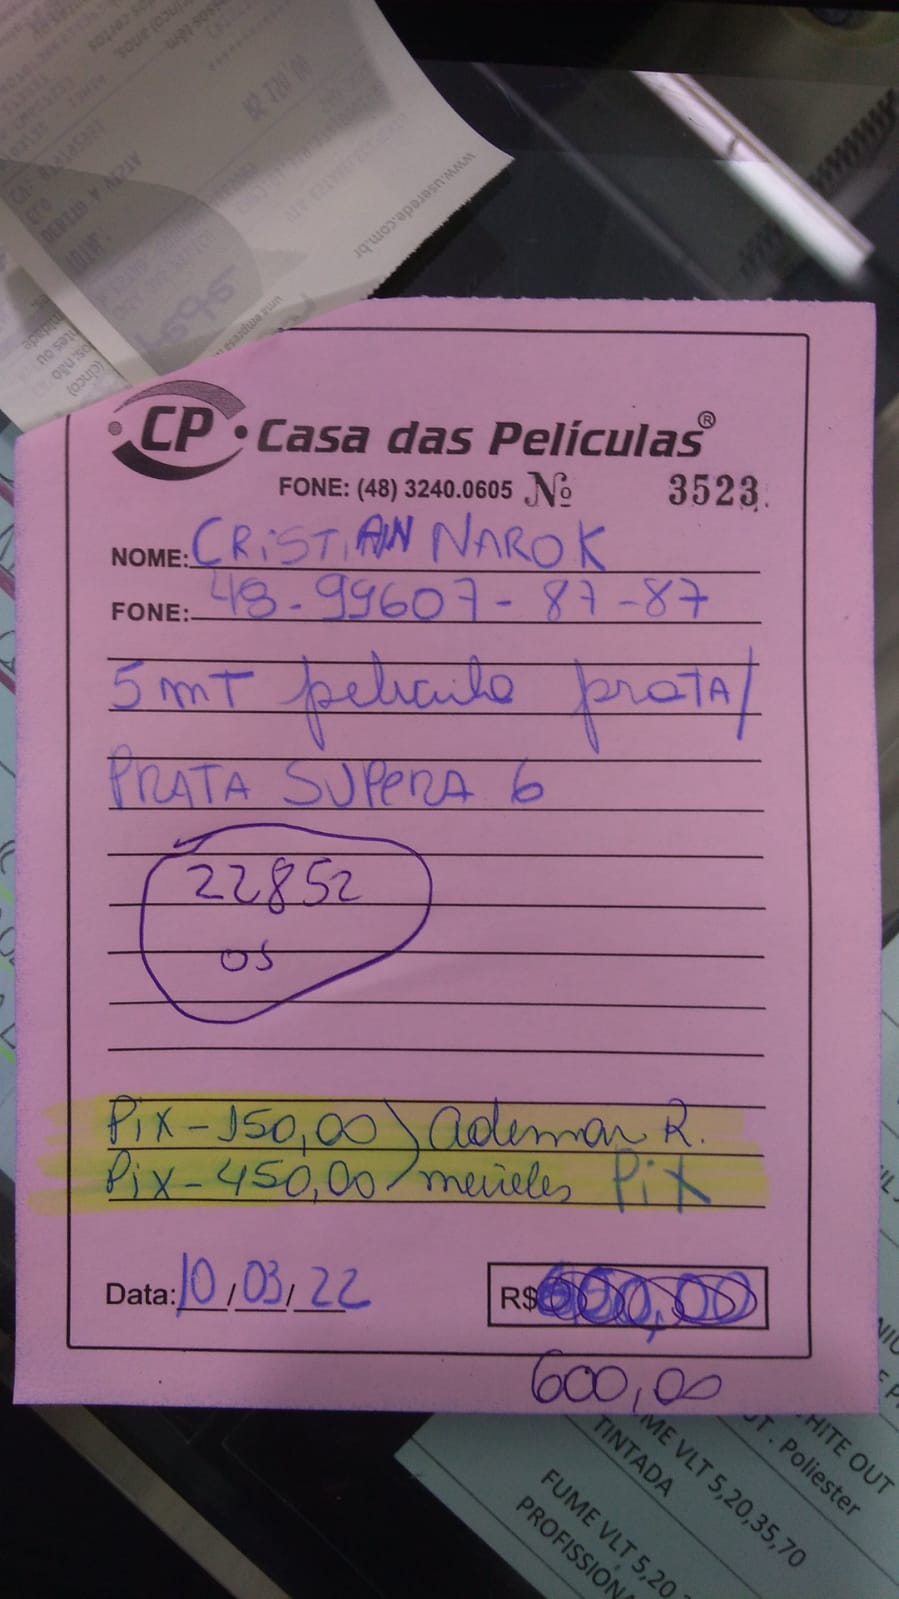 www.userede.com.br
CP Casa das Películas®
FONE: (48) 3240.0605 Nº 3523
NOME: CRISTIAN NAROK
FONE: 48-99607-87-87
5 mT pelicula prata/
PRATA SUPERA 6
22852
OS
Pix-150,00 ) Ademar R.
Pix-450,00 meireles Pix
Data: 10/03/22 R$
600,00
HITE OUT
T. Poliester
ME VLT 5,20,35,70
TINTADA
FUME VLT 5,20
PROFISSIONA